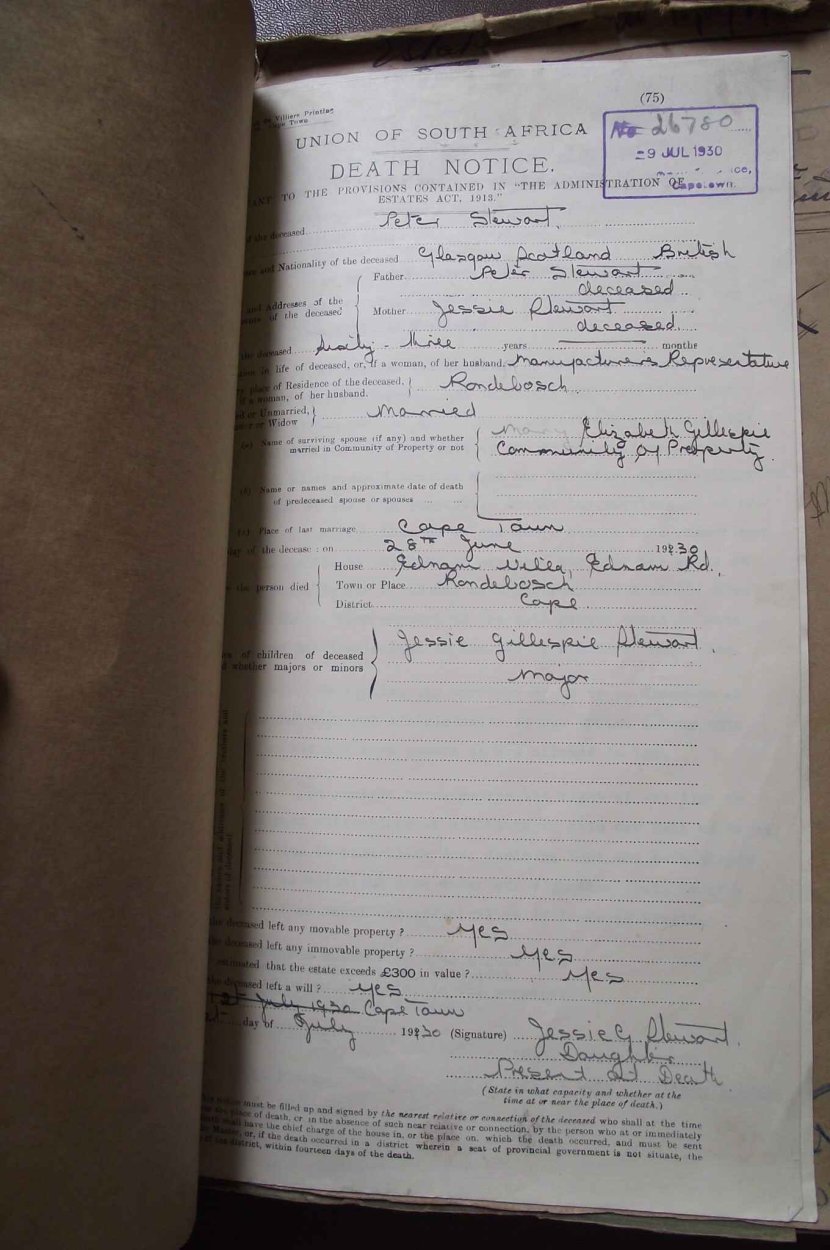 (75)
Villiers Printing
Cape Town
UNION OF SOUTH AFRICA
No 26780
-9 JUL 1930
Capetown.
DEATH NOTICE.
ANT TO THE PROVISIONS CONTAINED IN "THE ADMINISTRATION OF
ESTATES ACT, 1913."
of the deceased Peter Stewart.
and Nationality of the deceased Glasgow Scotland British
Father Peter Stewart
deceased
and Addresses of the
of the deceased
Mother Jessie Stewart
deceased.
the deceased Sixty-three years months
in life of deceased, or, if a woman, of her husband, Manufacturers Representative
place of Residence of the deceased,
if a woman, of her husband. Rondebosch
or Unmarried,
or Widow Married
(a) Name of surviving spouse (if any) and whether
married in Community of Property or not
Mary Elizabeth Gillespie
Community of Property.
(b) Name or names and approximate date of death
of predeceased spouse or spouses
(c) Place of last marriage Cape Town
day of the decease : on 28TH June 1930
the person died
House Ednam Villa, Ednam Rd.
Town or Place Rondebosch
District Cape
of children of deceased
whether majors or minors
Jessie Gillespie Stewart.
Major
the deceased left any movable property ? Yes
the deceased left any immovable property ? Yes
estimated that the estate exceeds £300 in value ? Yes
the deceased left a will ? Yes.
July 1930 Cape Town
day of July 1930 (Signature) Jessie G Stewart.
Daughter
Present at Death
(State in what capacity and whether at the
time at or near the place of death.)
must be filled up and signed by the nearest relative or connection of the deceased who shall at the time
place of death, or in the absence of such near relative or connection, by the person who at or immediately
shall have the chief charge of the house in, or the place on, which the death occurred, and must be sent
Master, or, if the death occurred in a district wherein a seat of provincial government is not situate, the
district, within fourteen days of the death.